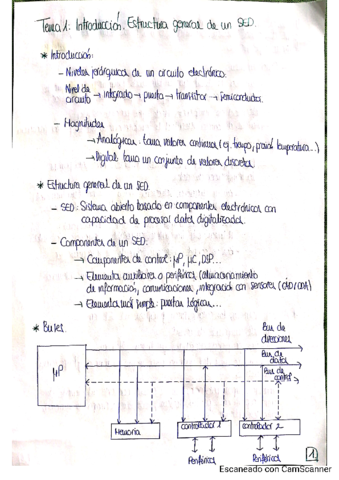 Tema 1: Introducción. Estructura general de un SED.
* Introducción:
- Niveles jerárquicos de un circuito electrónico.
Nivel de circuito → integrado → puerta → transistor → semiconductor.
- Magnitudes
→ Analógicas: toma valores continuos (ej. tiempo, presión, temperatura...)
→ Digitales: toma un conjunto de valores discretos.
* Estructura general de un SED.
- SED: Sistema abierto basado en componentes electrónicos con
capacidad de procesar datos digitalizados.
- Componentes de un SED:
→ Componentes de control: μP, μC, DSP...
→ Elementos auxiliares o periféricos (almacenamiento
de información, comunicaciones, integración con sensores (CAD/CDA)
→ Elementos más simples: puertas lógicas...
* Buses.
Bus de
direcciones
Bus de
datos
Bus de
control
μP
Memoria
Controlador 1
Controlador 2
Periféricos
Periféricos
1
Escaneado con CamScanner